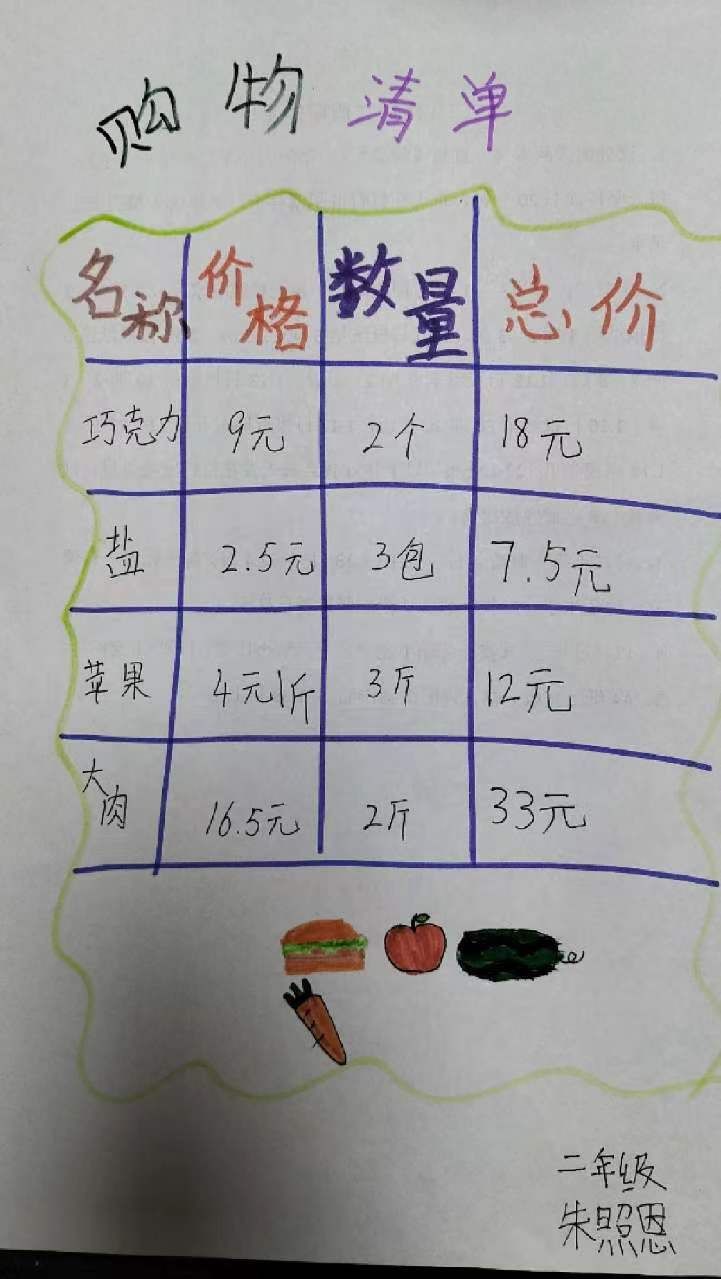 购物清单
名称 价格 数量 总价
巧克力 9元 2个 18元
盐 2.5元 3包 7.5元
苹果 4元1斤 3斤 12元
大肉 16.5元 2斤 33元
二年级
朱照恩